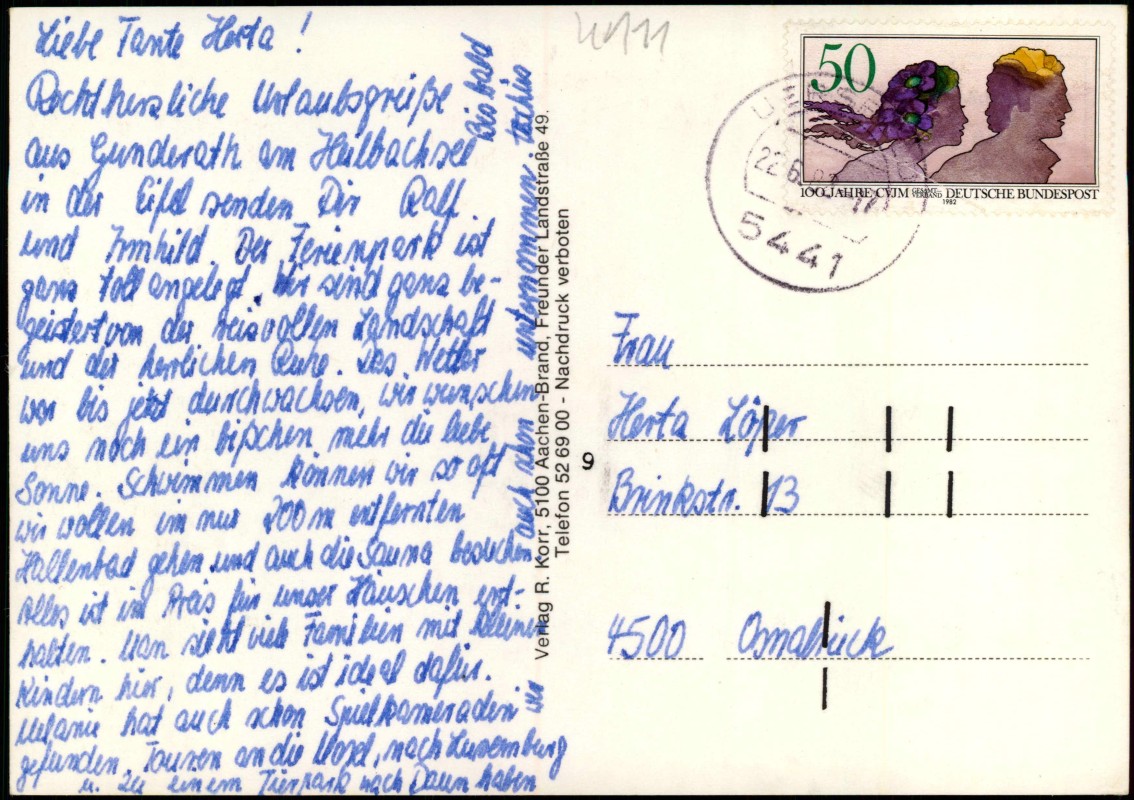 Liebe Tante Herta !
Recht herzliche Urlaubsgrüße
aus Gunderath am Heilbachsee
in der Eifel senden Dir Ralf
und Irmhild. Der Ferienpark ist
ganz toll angelegt. Wir sind ganz be-
geistert von der reizvollen Landschaft
und der herrlichen Ruhe. Das Wetter
war bis jetzt durchwachsen, wir wünschen
uns noch ein bißchen mehr die liebe
Sonne. Schwimmen können wir so oft
wir wollen im nur 200 m entfernten
Hallenbad gehen und auch die Sauna besuchen.
Alles ist im Preis für unser Häuschen ent-
halten. Man sieht viele Familien mit kleinen
Kindern hier, denn es ist ideal dafür.
Melanie hat auch schon Spielkameraden
gefunden. Touren an die Mosel, nach Luxemburg
u. zu einem Tierpark nach Daun haben
wir auch schon unternommen.
Bis bald
Verlag R. Korr, 5100 Aachen-Brand, Freunder Landstraße 49.
Telefon 52 69 00 - Nachdruck verboten
50
100 JAHRE CVJM GESAMT-VERBAND DEUTSCHE BUNDESPOST
1982
22.6.
5441
Frau
Herta Löper
Brinkstr. 13
9
4500 Osnabrück